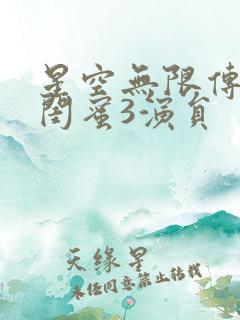 星空無限傳
閨蜜3演員
天缘星
未经同意禁止转载